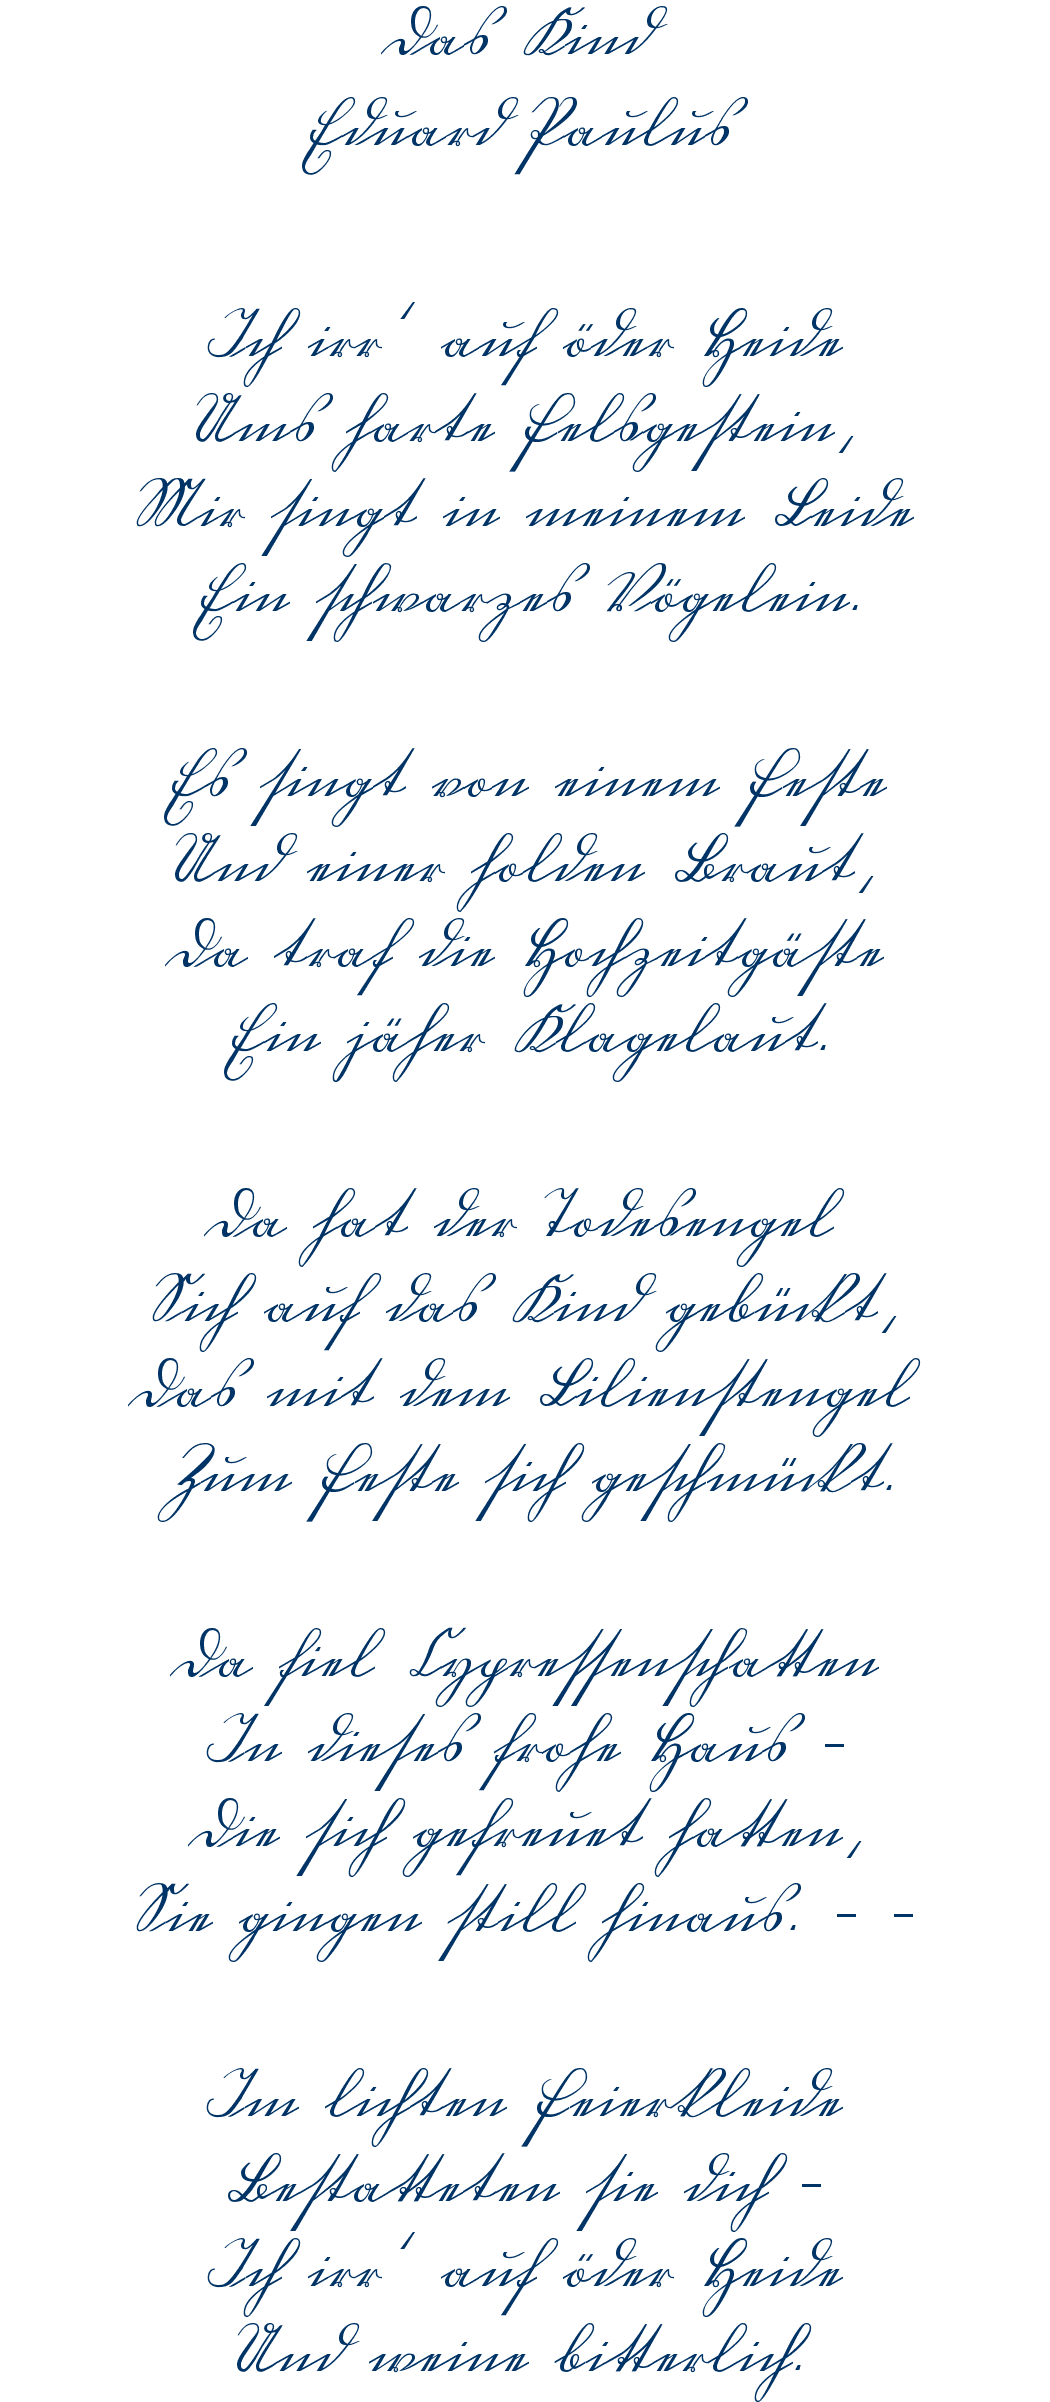 Das Kind
Eduard Paulus
Ich irr' auf öder Heide
Ums harte Felsgestein,
Mir singt in meinem Leide
Ein schwarzes Vögelein.
Es singt von einem Feste
Und einer holden Braut,
Da traf die Hochzeitgäste
Ein jäher Klagelaut.
Da hat der Todesengel
Sich auf das Kind gebückt,
Das mit dem Lilienstengel
Zum Feste sich geschmückt.
Da fiel Cypressenschatten
In dieses frohe Haus -
Die sich gefreuet hatten,
Sie gingen still hinaus. - -
Im lichten Feierkleide
Bestatteten sie dich -
Ich irr' auf öder Heide
Und weine bitterlich.